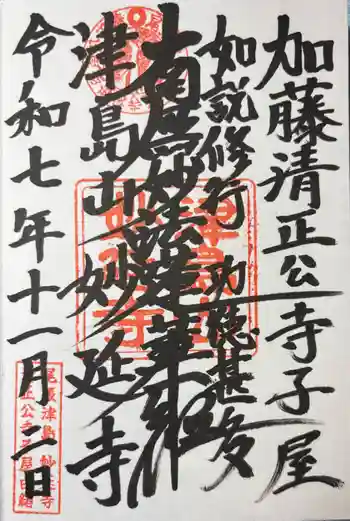 加藤清正公寺子屋
如説修行 功徳甚多
南無妙法蓮華経
津島山 妙延寺
令和七年十一月二日
尾張津島 妙延寺
清正公寺子屋旧蹟